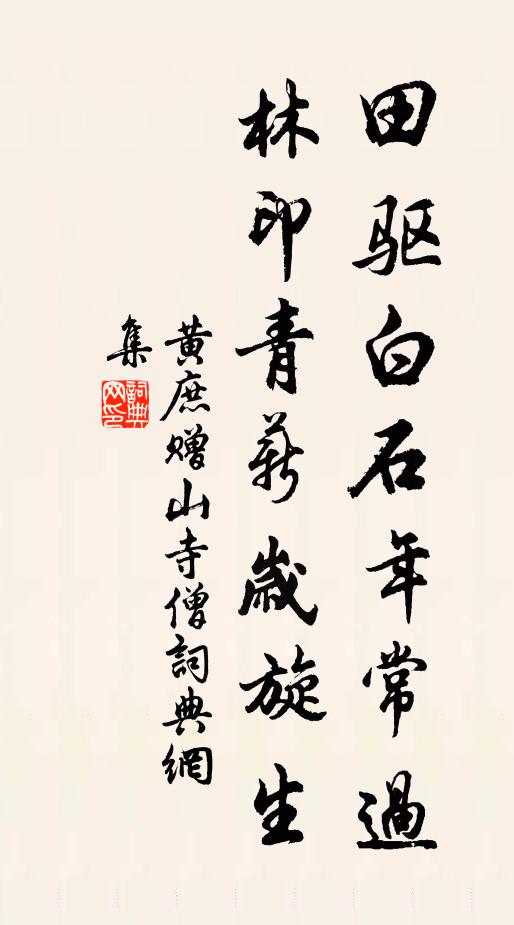 田驱白石年常過
林印青薪歲旋生
黄庶赠山寺僧詞典網
集
詞典網印